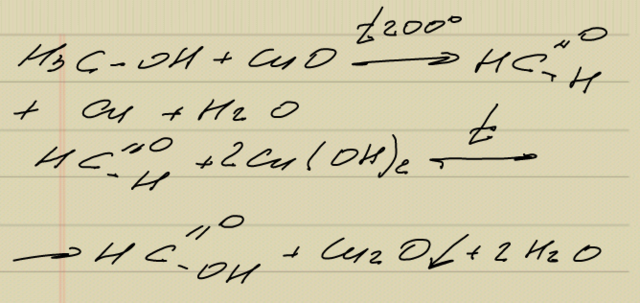 H₃C-OH + CuO →(t 200°) HC(=O)-H
+ Cu + H₂O
HC(=O)-H + 2Cu(OH)₂ →(t)
→ HC(=O)-OH + Cu₂O↓ + 2H₂O